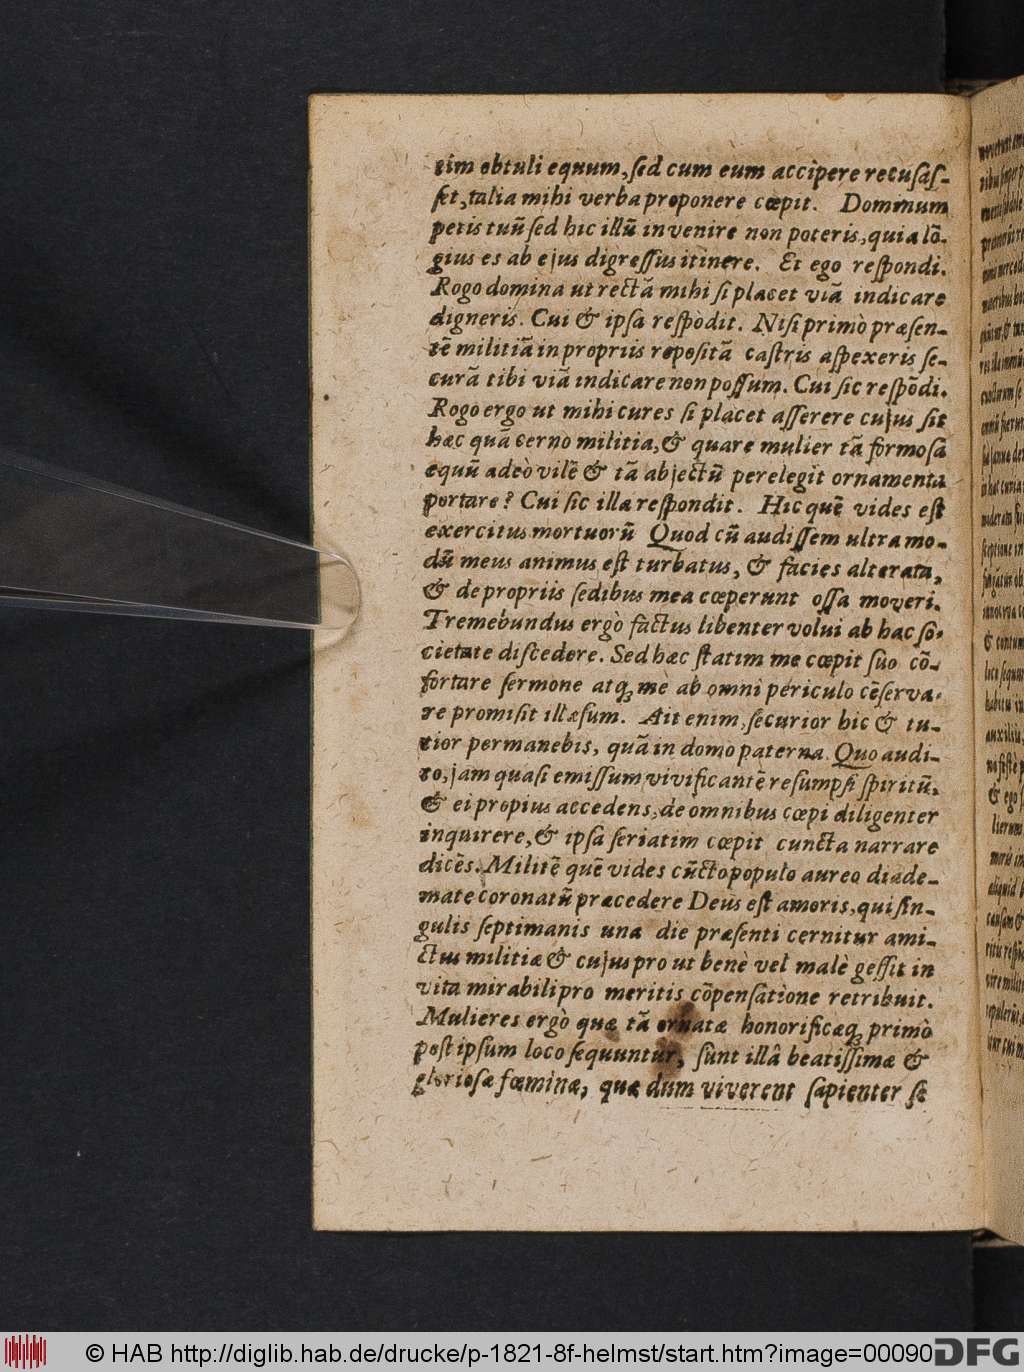 tim obtuli equum, sed cum eum accipere recusas-
set, talia mihi verba proponere cœpit. Dominum
petis tuũ sed hic illũ invenire non poteris, quia lõ-
gius es ab ejus digressus itinere. Et ego respondi.
Rogo domina ut rectã mihi si placet viã indicare
digneris. Cui & ipsa respõdit. Nisi primò præsen-
tẽ militiã in propriis repositã castris aspexeris se-
curã tibi viã indicare non possum. Cui sic respõdi.
Rogo ergo ut mihi cures si placet asserere cujus sit
hæc quã cerno militia, & quare mulier tã formosã
equũ adeò vilẽ & tã abjectũ perelegit ornamenta
portare? Cui sic illa respondit. Hic quẽ vides est
exercitus mortuorũ Quod cũ audissem ultra mo-
dũ meus animus est turbatus, & facies alterata,
& de propriis sedibus mea cœperunt ossa moveri.
Tremebundus ergò factus libenter volui ab hac so-
cietate discedere. Sed hæc statim me cœpit suo cõ-
fortare sermone atq; mè ab omni periculo cẽserva-
re promisit illæsum. Ait enim, securior hic & tu-
tior permanebis, quã in domo paterna. Quo audi-
to, jam quasi emissum vivificantẽ resumpsi spiritũ,
& ei propius accedens, de omnibus cœpi diligenter
inquirere, & ipsa seriatim cœpit cuncta narrare
dicẽs. Militẽ quẽ vides cũcto populo aureo diade-
mate coronatũ præcedere Deus est amoris, qui sin-
gulis septimanis una die præsenti cernitur ami-
ctus militiæ & cujus pro ut benè vel malè gessit in
vita mirabili pro meritis cõpensatione retribuit.
Mulieres ergò quæ tã ornatæ honorificæq; primò
post ipsum loco sequuntur, sunt illâ beatissimæ &
gloriosæ fœminæ, quæ dum viverent sapienter se
© HAB http://diglib.hab.de/drucke/p-1821-8f-helmst/start.htm?image=00090
DFG